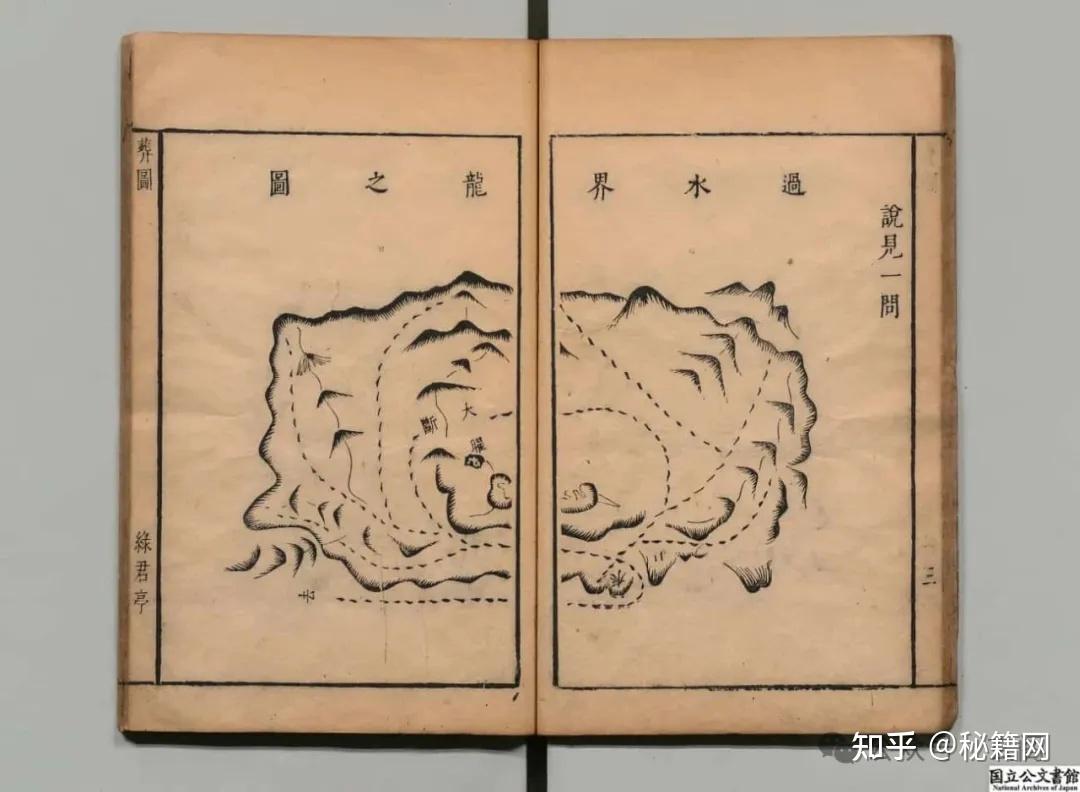 說見一問
過水界龍之圖
大
水
去
三
葬圖
綠君亭
知乎 @秘籍网
国立公文書館
National Archives of Japan